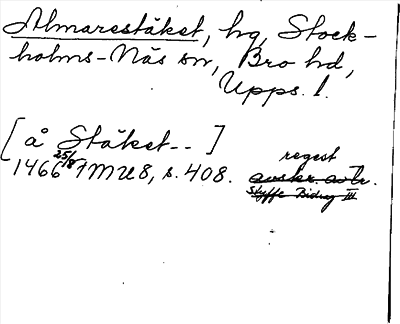 Almarestäket, hg, Stock-
holms-Näs sn, Bro hd,
Upps. l.
[å Stäket-- ]
regest
1466 25/8 HMU8, s. 408. avskr. avtr.
Styffe Bidrag III